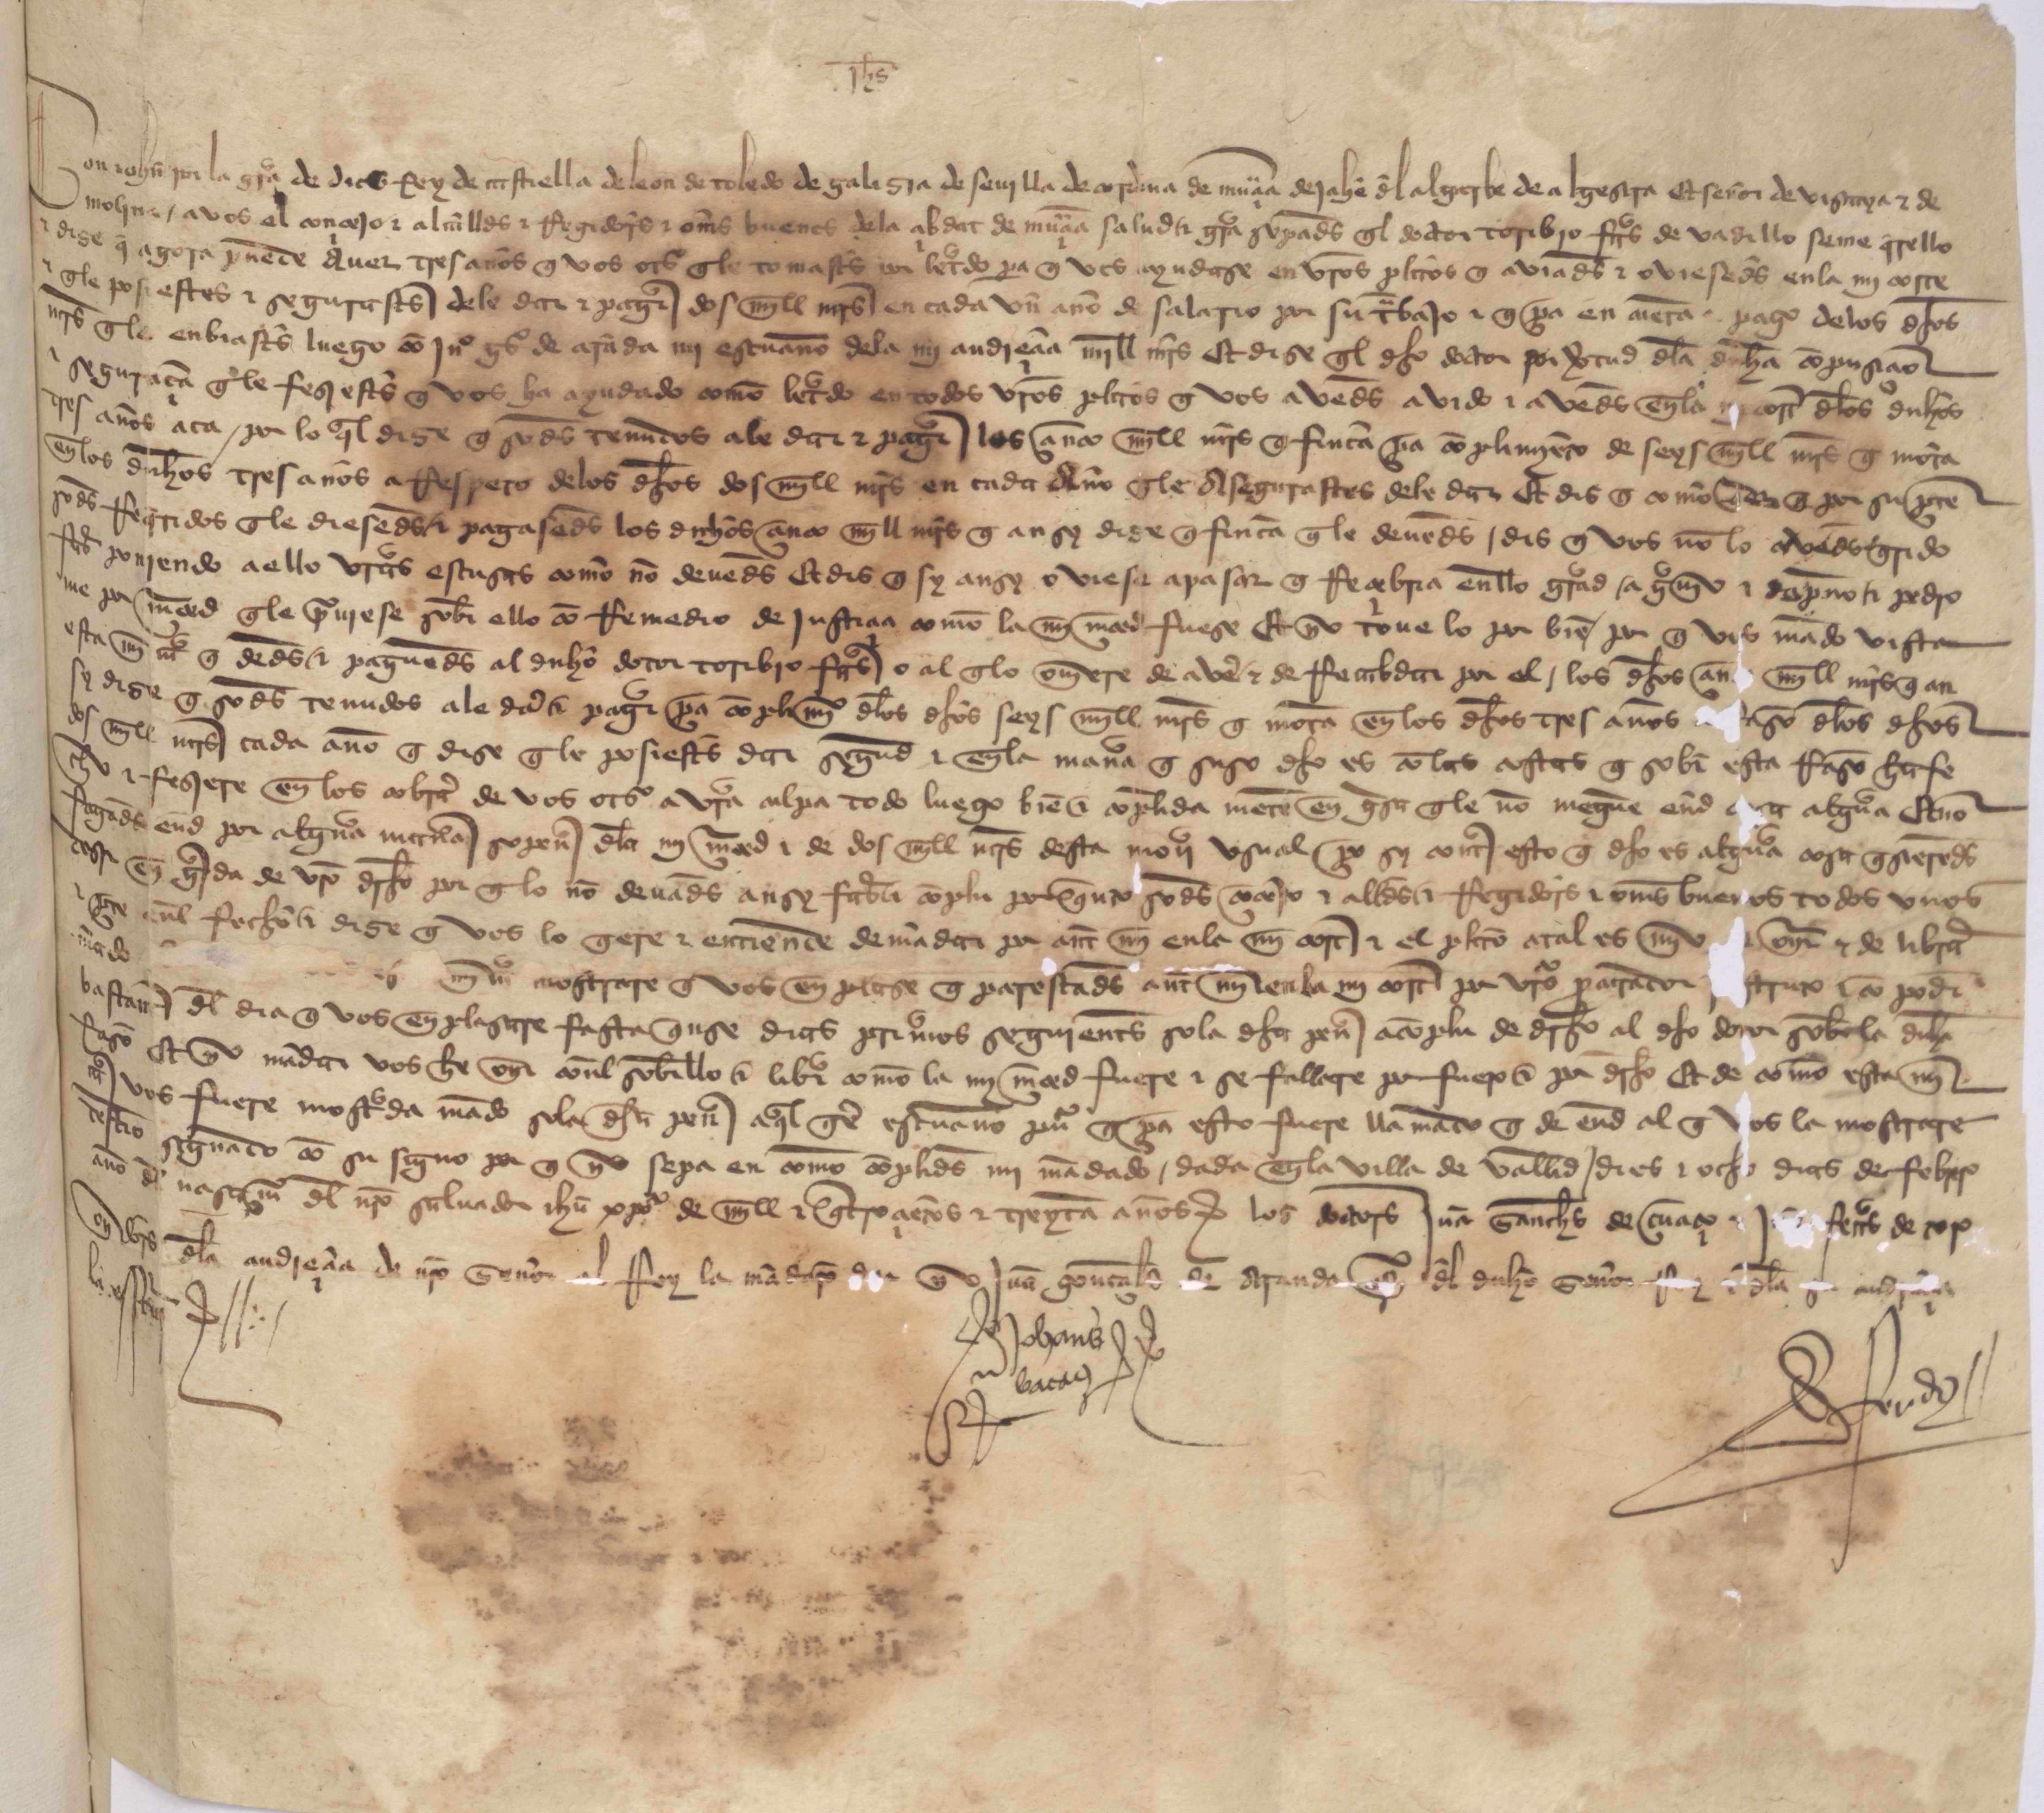 Jhs
Don iohn por la grã de dios Rey de castiella de leon de toledo de galisia de seuilla de cordoua de murçia de iahen del algarbe de algesira Et señor de viscaya & de
molina / a vos el conçejo & alcalles & Regidores & oms buenos dela çibdat de murçia salud & grã sepades ql dotor toribio frrs de vadillo seme qrello
& dise q agora puede Auer tres años q vos otros qle tomastes por letrado pa q vos ayudase en vros pleitos q aviades & oviesedes enla mi corte
& qle posiestes & segurastes dele dar & pagar dos mill mrs en cada un año de salario por su trabajo & q pa en cuenta & pago delos dhos
mrs qle enbiastes luego con Juº gs de aranda mi escriuano dela mi audiençia mill mrs Et dise ql dho dotor por vertud dla dicha conpusiçion
& segurança qle fesiestes q vos ha ayudado como letrado en todos vros pleitos q vos avedes avido & avedes enla mi corte dlos dichos
tres años aca / por lo ql dise q sodes tenudos ale dar & pagar los çinco mill mrs q fincan pa conplimiento de seys mill mrs q monta
enlos dichos tres años a Respeto delos dhos dos mill mrs en cada Año qle Asegurastes dele dar Et dis q como qer q por su parte
sodes Reqridos qle diesedes & pagasedes los dichos çinco mill mrs q ansy dise q fincan qle deuedes / dis q vos non lo avedes qrido
faser poniendo aello vras escusas como non deuedes Et dis q sy ansy oviese a pasar q Reçebiria enello grand agrauio & dapno & pedio
me por merçed qle proueyese sobre ello con Remedio de justiçia como la mi merçed fuese Et yo toue lo por bien / por q vos mando vista
esta mi carta q dedes & paguedes al dicho dotor toribio frrs o al qlo ouiere de aver & de Recabdar por el / los dhos çinco mill mrs q an
sy dise q sodes tenudos ale dar & pagar pa conplimio dlos dhos seys mill mrs q monta enlos dhos tres años a Rason dlos dhos
dos mill mrs cada año q dise qle posiestes dar segund & enla manera q suso dho es con las costas q sobre esta Rason ha fe
cho & fesiere enlos cobrar de vos otros a vra culpa todo luego bien & conplida mente en guisa qle non mengue ende cosa alguna Et non
fagades ende por alguna manera so pena dla mi merçed & de dos mill mrs desta moneda usual pero sy contra esto q dho es alguna cosa qsieredes
desir en guarda de vro dreho por qlo non deuades ansy faser & conplir por quanto sodes conçejo & alldes & Regidores & oms buenos todos unos
& parte enel Fecho & dise q vos lo qere & entiende demandar por ante mi enla mi corte & el pleito a tal es mio de oyr & de librar
mando mi carta mostrare q vos enplase q parescades ante mi enla mi corte por vro procurador istruto & con poder
bastante del dia q vos enplasare fasta quinse dias primeros seguientes sola dha pena a conplir de dreho al dho dotor sobre la dicha
Rason Et yo mandar vos he oyr conel sobrello & librar como la mi merçed fuere & se fallare por fuero & por dreho Et de como esta mi
carta vos fuere mostrada mando sola dha pena a ql qer escriuano puº q pa esto fuere llamado q de ende al q vos la mostrare
testio signado con su signo por q yo sepa en como conplides mi mandado / dada enla villa de vallid / dies & ocho dias de febrero
año del nasçimº del nro saluador ihu xpo de mill & quatroçientos & treynta años los dotores Juan sanches de çuaço & frrs de toro
oydores dla audiençia de nro señor el Rey la mandaron dar yo Juan gonçales de Aranda escº del dicho señor Rey & dla su audiençia
la escreui
Johanes
bacas
Ferdꝰ